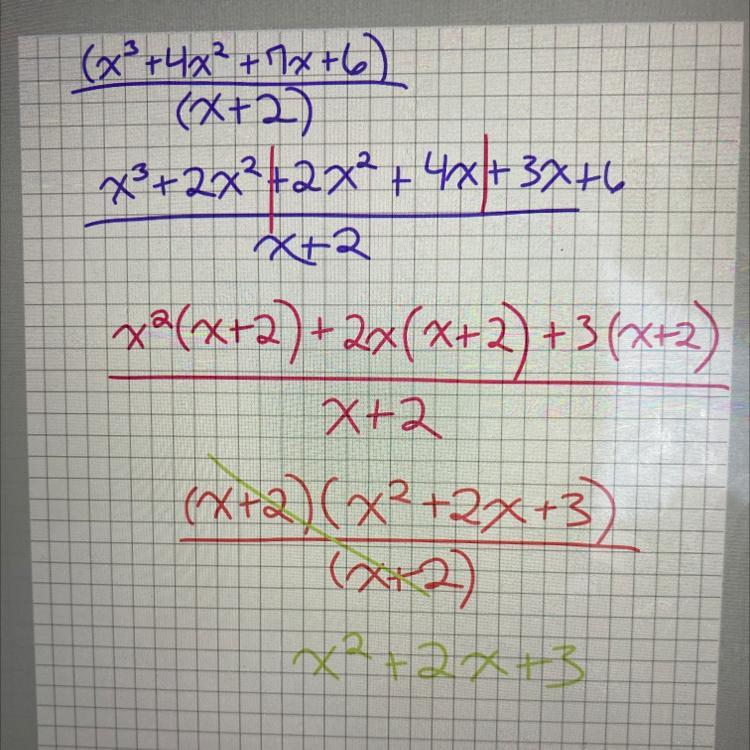 (x³+4x²+7x+6)
(x+2)
x³+2x²+2x²+4x+3x+6
x+2
x²(x+2)+2x(x+2)+3(x+2)
x+2
(x+2)(x²+2x+3)
(x+2)
x²+2x+3